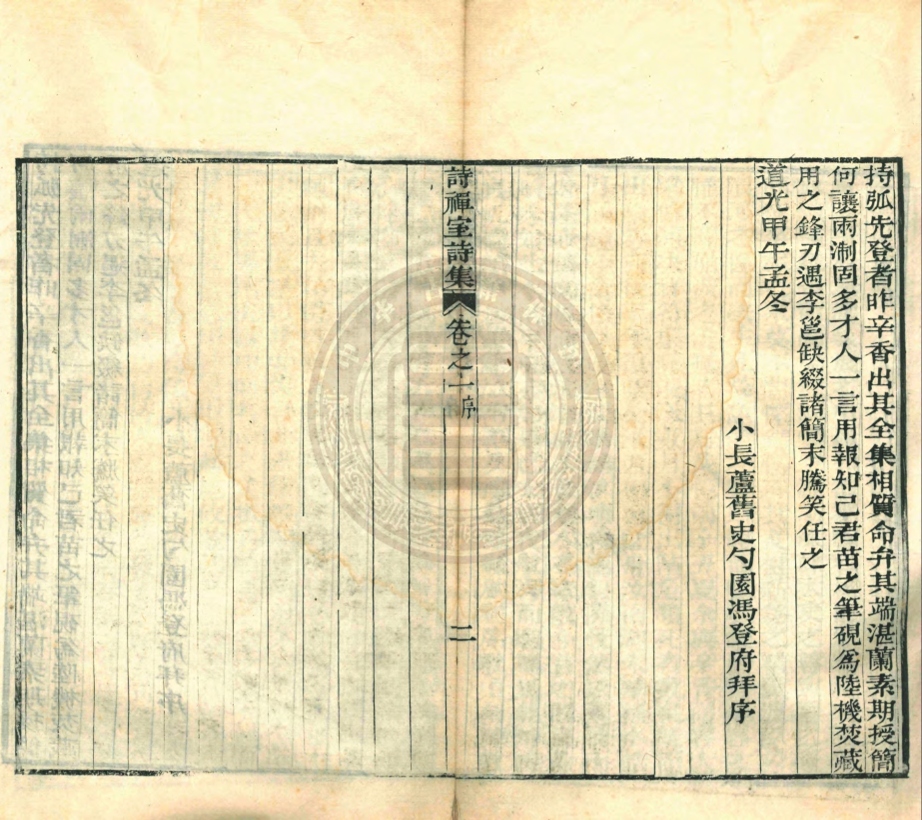 持弧先登者昨辛香出其全集相質命弁其端湛蘭素期授簡
何讓兩浙固多才人一言用報知己君苗之筆硯爲陸機焚藏
用之鋒刃遇李邕缺綴諸簡末騰笑任之
道光甲午孟冬
小長蘆舊史勺園馮登府拜序
詩禪室詩集 卷之一序 二